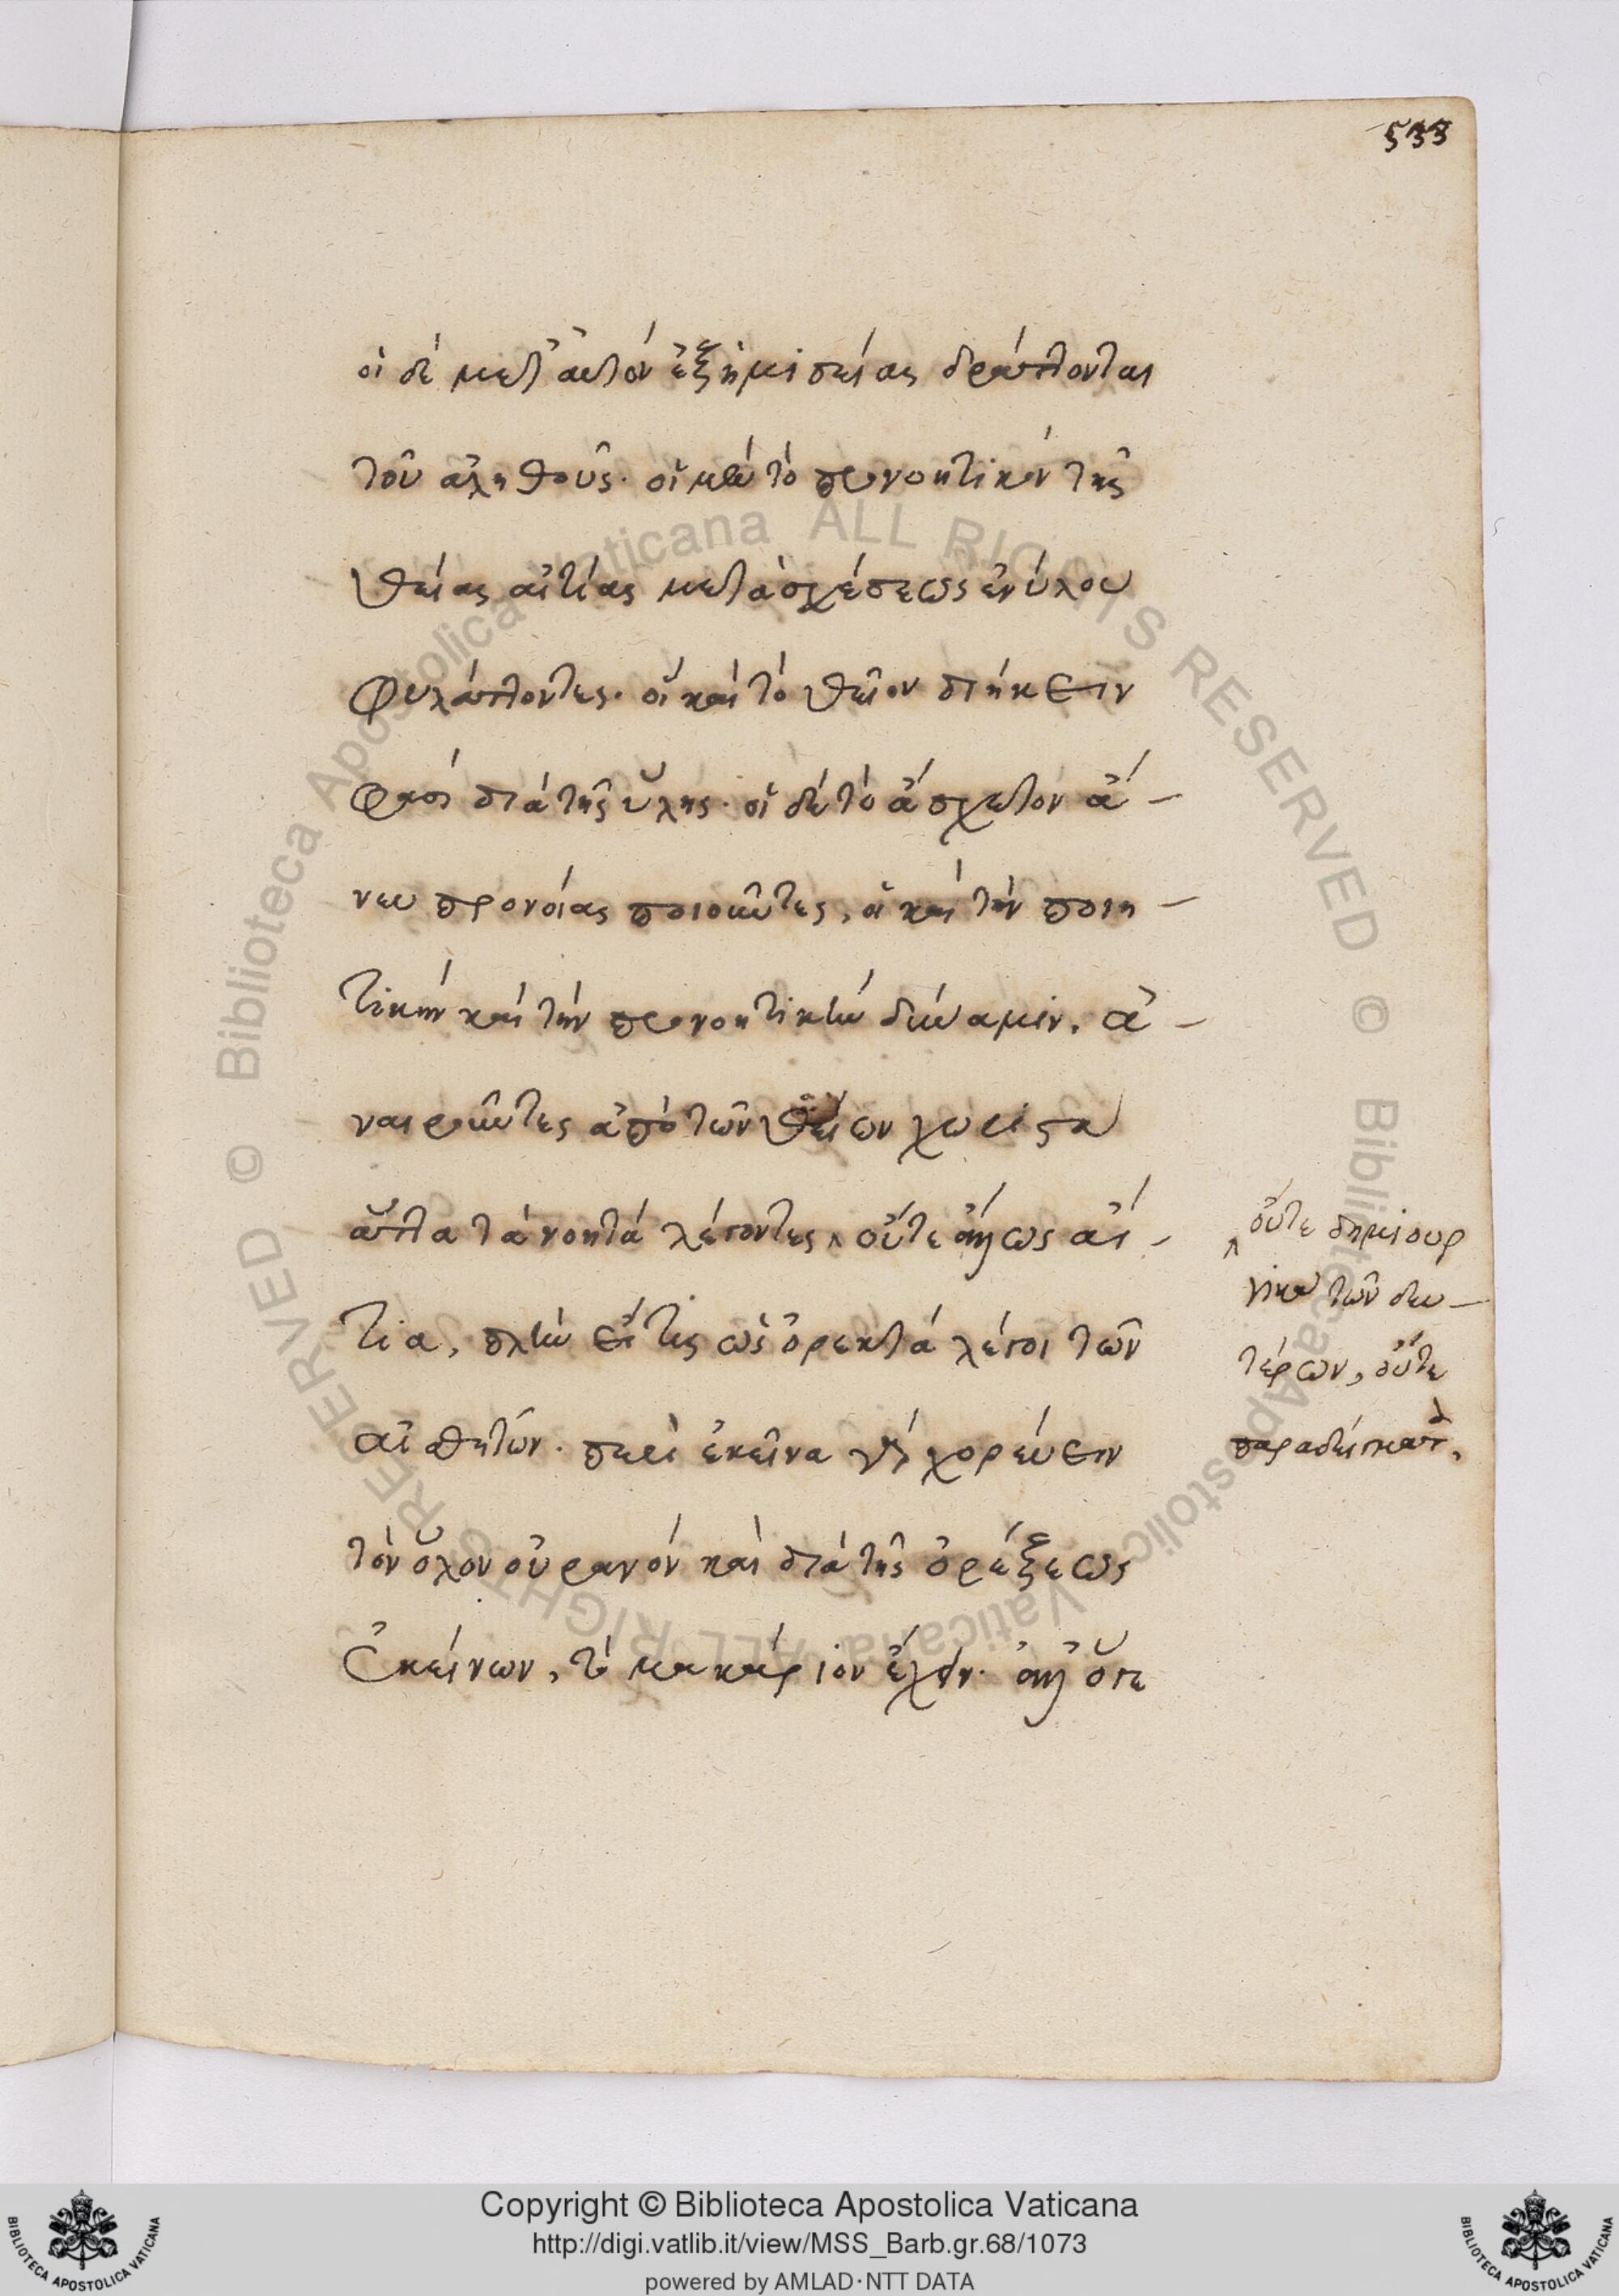 533
οἱ δὲ μετ' αὐτὸν ἐξ ἡμισείας δράττονται
τοῦ ἀληθοῦς· οἱ μὲν τὸ προνοητικὸν τῆς
θείας αἰτίας μετὰ σχέσεως ἐνύλου
φυλάττοντες· οἳ καὶ τὸ θεῖον διήκειν
φασὶ διὰ τῆς ὕλης· οἱ δὲ τὸ ἄσχετον ἄ-
νευ προνοίας ποιοῦντες, οἳ καὶ τὴν ποιη-
τικὴν καὶ τὴν προνοητικὴν δύναμιν, ἀ-
ναιροῦντες ἀπὸ τῶν θείων χωριστὰ
ἄττα τὰ νοητὰ λέγοντες ‸ οὔτε ἄλλως αἴ-
τια, πλὴν εἴ τις ὡς ὀρεκτὰ λέγοι τῶν
αἰσθητῶν· περὶ ἐκεῖνα γὰρ χορεύειν
τὸν ὅλον οὐρανὸν καὶ διὰ τῆς ὀρέξεως
ἐκείνων, τὸ μακάριον ἔχειν· ἀλλ' ὅτι
‸ οὔτε δημιουρ
γικὰ τῶν δευ-
τέρων, οὔτε
παραδείγματα,
Copyright © Biblioteca Apostolica Vaticana
http://digi.vatlib.it/view/MSS_Barb.gr.68/1073
powered by AMLAD·NTT DATA
BIBLIOTECA APOSTOLICA VATICANA
BIBLIOTECA APOSTOLICA VATICANA
© Biblioteca Apostolica Vaticana ALL RIGHTS RESERVED
© Biblioteca Apostolica Vaticana ALL RIGHTS RESERVED